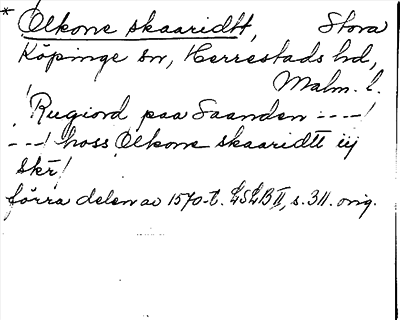 * Olkone skaaridtt, Stora
Köpinge sn, Herrestads hd,
Malm. l.
! Rugiord paa Saanden ----!
---! hoss Olkone skaaridtt iij
skr!
förra delen av 1570-t. LSLB II, s. 311. orig.